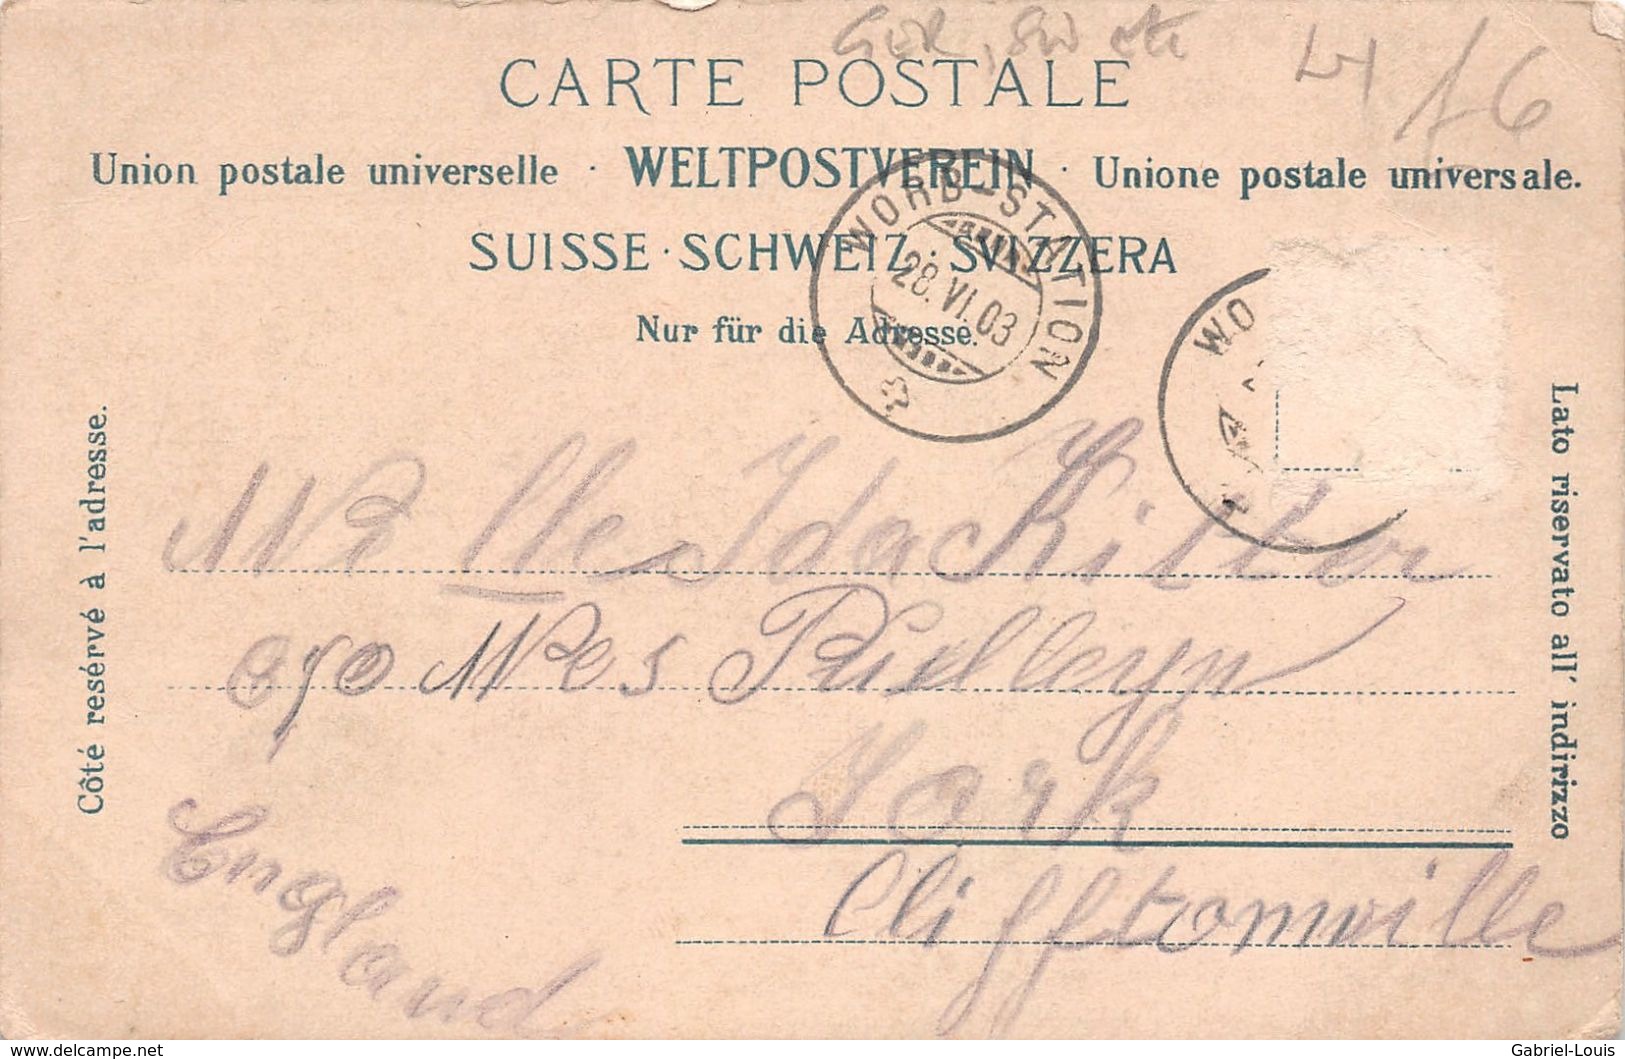 GER, SW etc
CARTE POSTALE
Union postale universelle · WELTPOSTVEREIN · Unione postale universale.
SUISSE · SCHWEIZ · SVIZZERA
Nur für die Adresse.
WORB-STATION
28.VI.03
WO
Côté resérvé à l'adresse.
Lato riservato all' indirizzo
Mlle Ida Ritter
Pulleyn
York
Cliftonville
England
delcampe.net
Gabriel-Louis